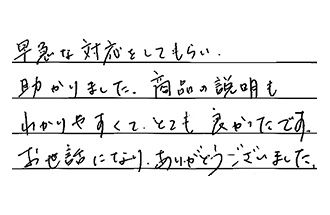 早急な対応をしてもらい.
助かりました。商品の説明も
わかりやすくて、とても良かったです。
お世話になり、ありがとうございました。